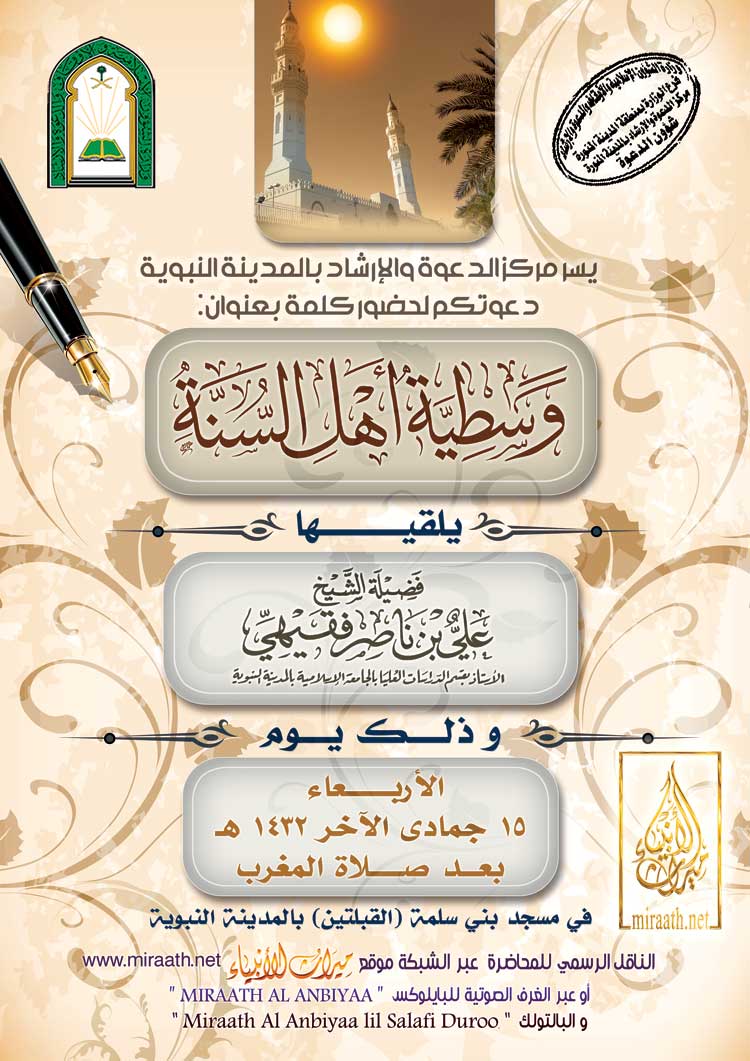 وزارة الشؤون الإسلامية والأوقاف والدعوة والإرشاد
فرع الوزارة بمنطقة المدينة المنورة
مركز الدعوة والإرشاد بالمدينة المنورة
شؤون الدعوة
يسر مركز الدعوة والإرشاد بالمدينة النبوية
دعوتكم لحضور كلمة بعنوان:
وَسَطِيَّةُ أَهْلِ السُّنَّةِ
يلقيـــــها
فَضِيلَة الشَّيْخ
عَلِيُّ بْن نَاصِر فَقِيهِيّ
الأستاذ بقسم الدراسات العليا بالجامعة الإسلامية بالمدينة النبوية
و ذلـك يـوم
الأربـــعاء
١٥ جمادى الآخر ١٤٣٢ هـ
بعد صـلاة المغرب
ميراث الأنبياء
miraath.net
في مسجد بني سلمة (القبلتين) بالمدينة النبوية
الناقل الرسمي للمحاضرة عبر الشبكة موقع ميراث الأنبياء www.miraath.net
أو عبر الغرف الصوتية للبايلوكس " MIRAATH AL ANBIYAA "
و البالتولك " Miraath Al Anbiyaa lil Salafi Duroo "